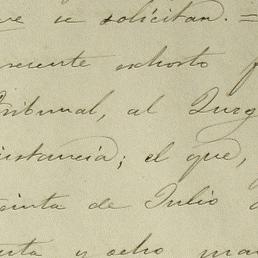 ue se solicitan. =
resente exhorto p
Tribunal, al Juzg
instancia; el que,
einta de Julio d
enta y ocho man